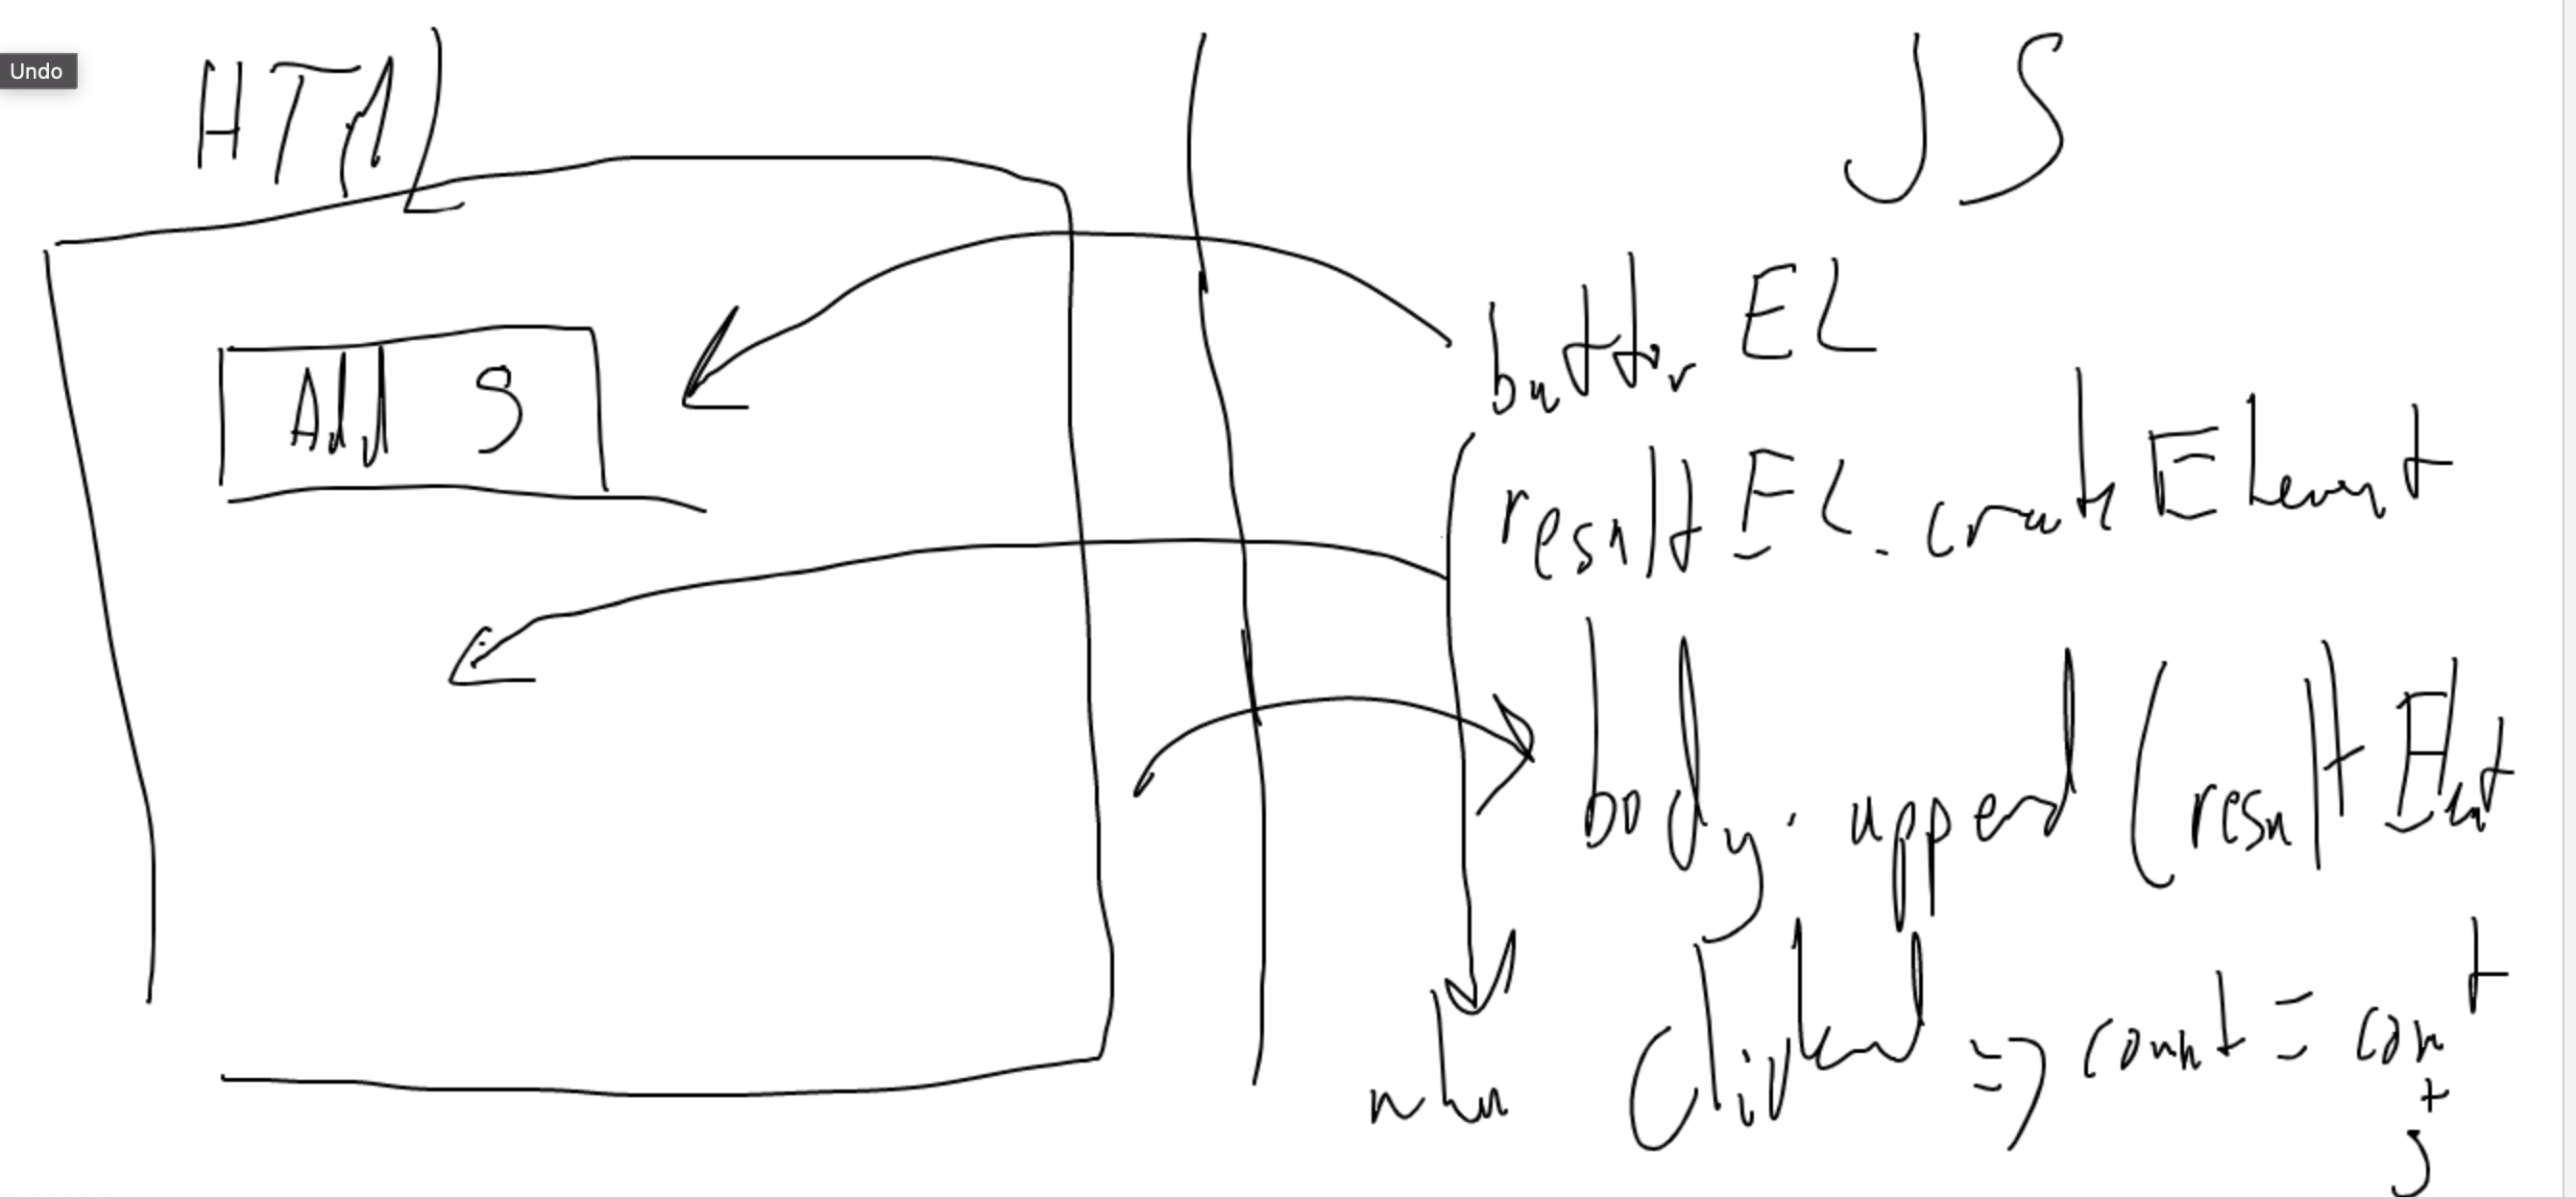 Undo
HTML
JS
button EL
Add 5
result EL. createElement
body. append (result Elmt
when clicked => count = count
+
5